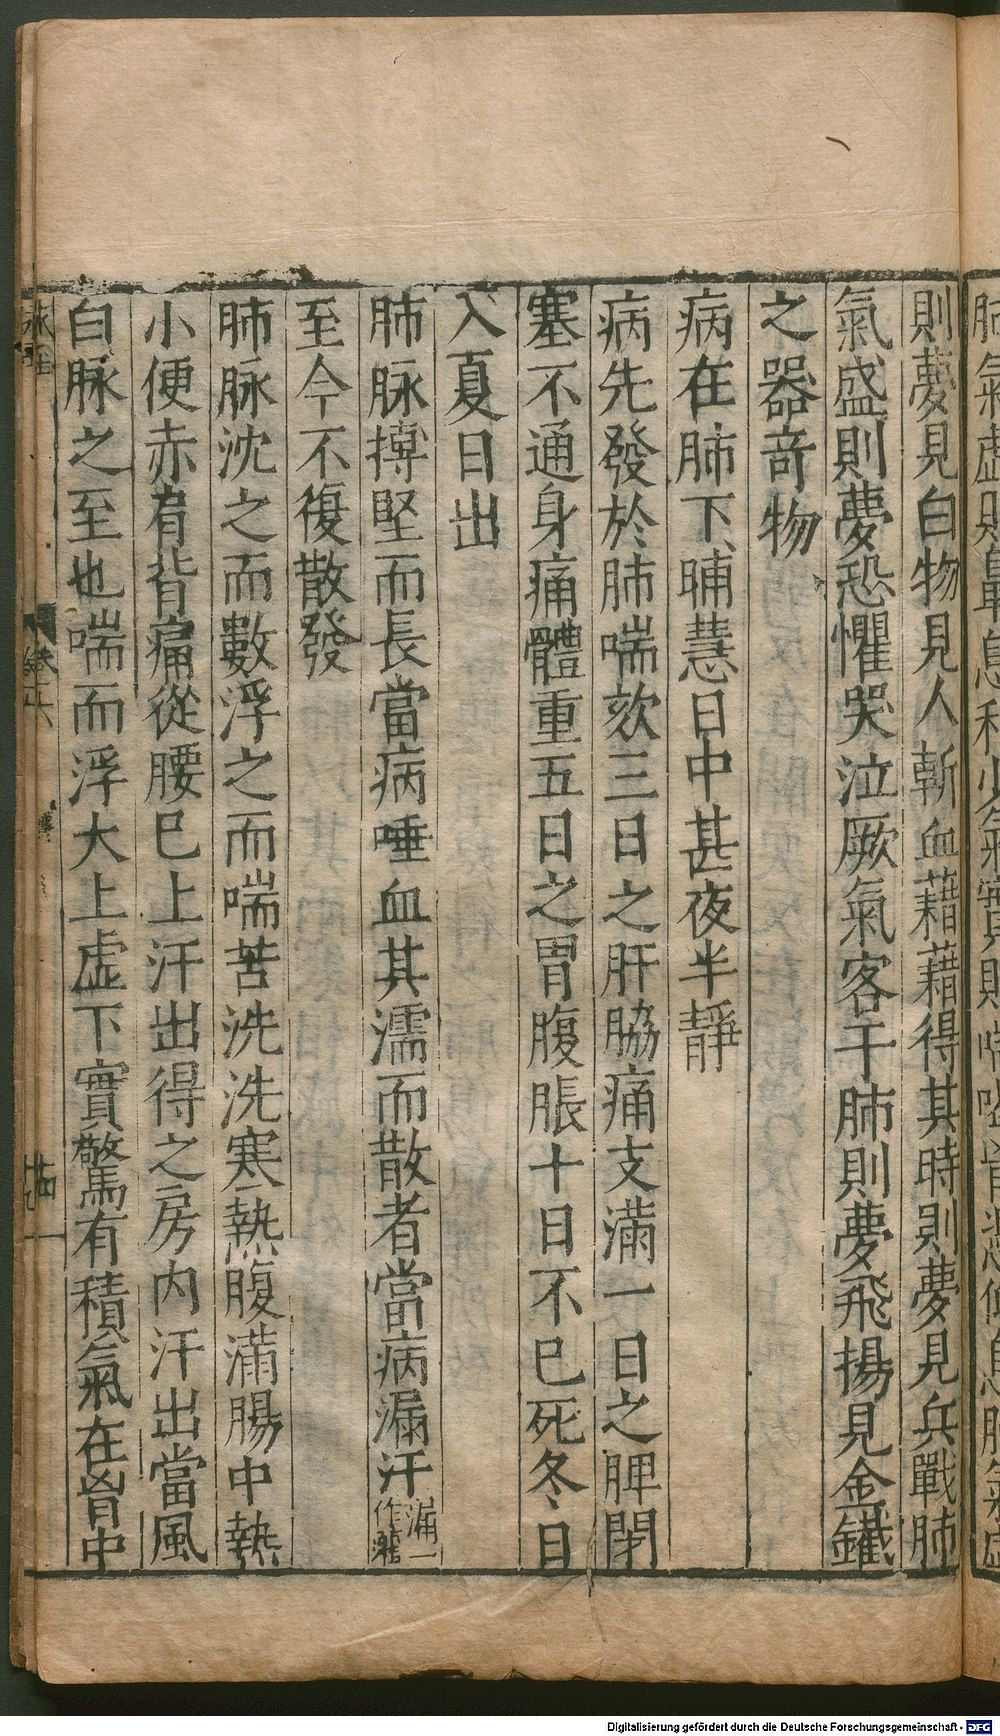 則夢見白物見人斬血藉藉得其時則夢見兵戰肺
氣盛則夢恐懼哭泣厥氣客于肺則夢飛揚見金鐵
之器竒物
病在肺下晡慧日中甚夜半靜
病先發於肺喘欬三日之肝脇痛支滿一日之脾閉
塞不通身痛體重五日之胃腹脹十日不已死冬日
入夏日出
肺脉搏堅而長當病唾血其濡而散者當病漏汗漏一作灌
至今不復散發
肺脉沈之而數浮之而喘苦洗洗寒熱腹滿腸中熱
小便赤肩背痛從腰已上汗出得之房內汗出當風
白脉之至也喘而浮大上虛下實驚有積氣在胷中
Digitalisierung gefördert durch die Deutsche Forschungsgemeinschaft - DFG